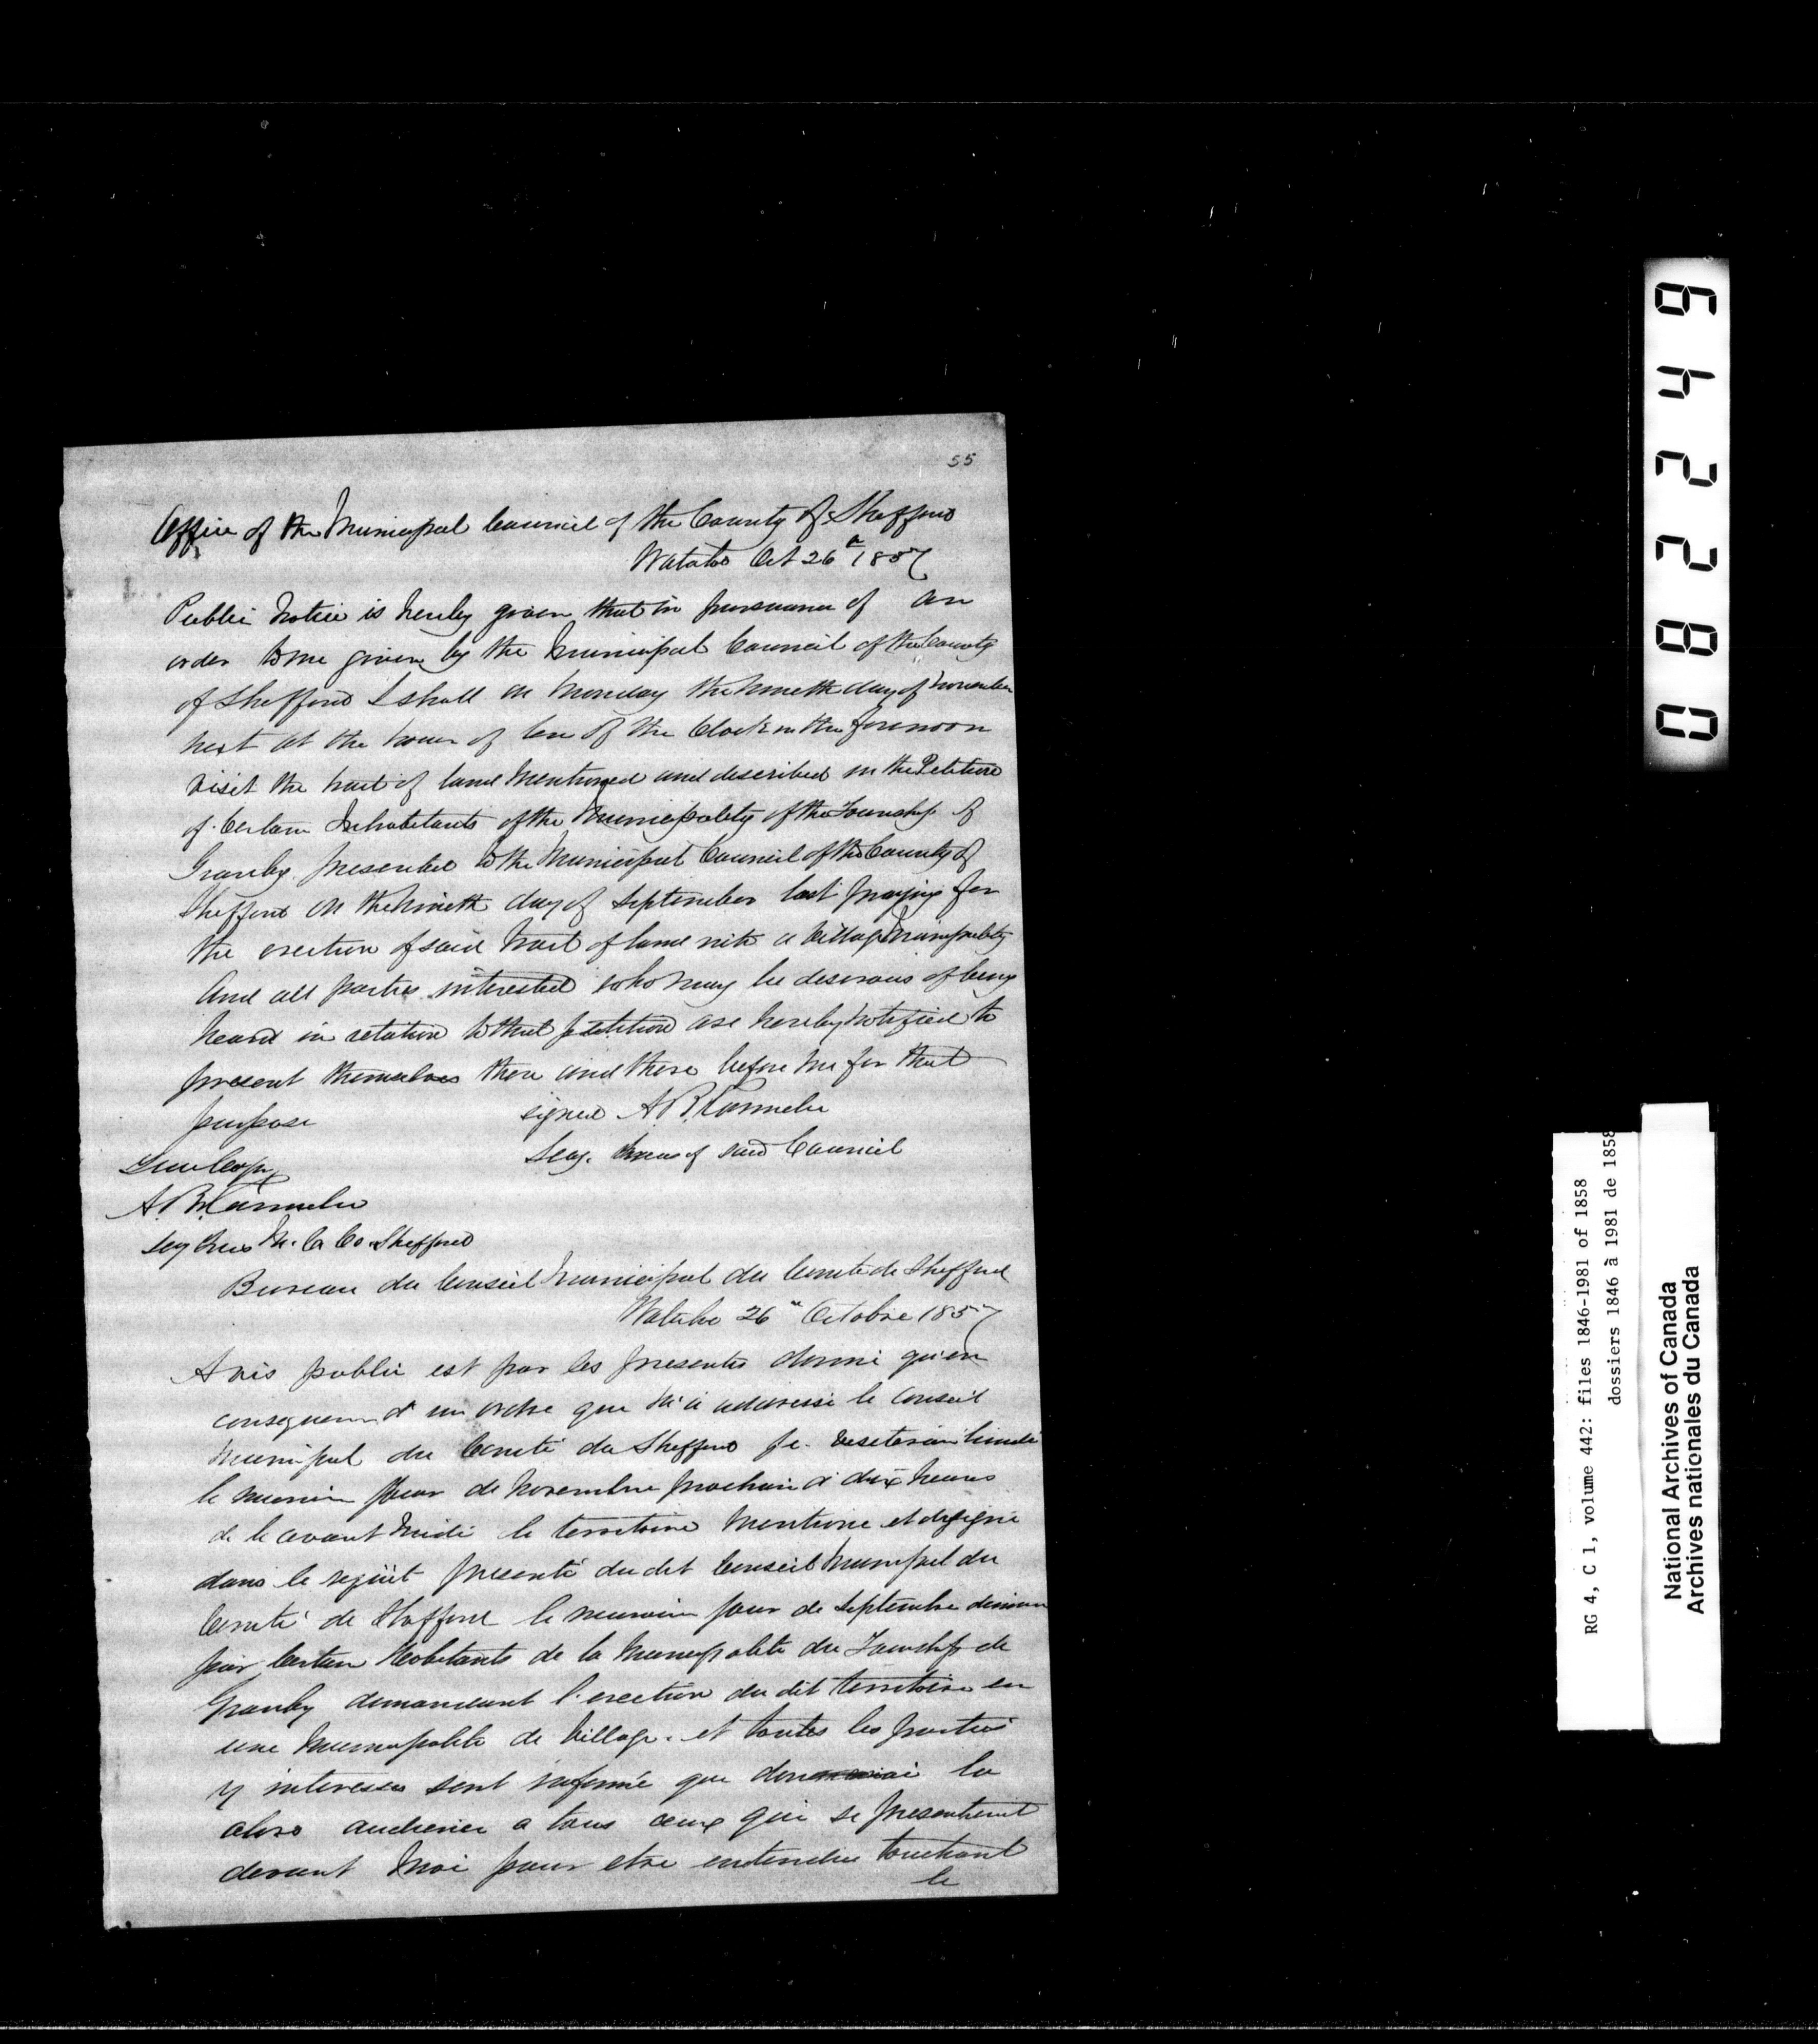 55
Office of the Municipal Council of the County of Shefford
Waterloo Oct 26th 1857
Public Notice is hereby given that in pursuance of an
order to me given by the Municipal Council of the County
of Shefford I shall on Monday the Nineth day of November
next at the hour of ten of the Clock in the forenoon
visit the tract of land Mentioned and described in the Petition
of Certain Inhabitants of the Municipality of the Township of
Granby presented to the Municipal Council of the County of
Shefford on the Nineth day of September last praying for
the erection of said tract of land into a Village Municipality
And all parties interested who may be desirous of being
heard in relation to that petition are hereby notified to
present themselves then and there before me for that
purpose
signed A. B. Parmelee
Secy. Treas of said Council
True Copy
A. B. Parmelee
Secy Treas M. C. Co. Shefford
Bureau du Conseil Municipal du Comté de Shefford
Waterloo 26 Octobre 1857
Avis public est par les presentes donné qu'en
consequence d'un ordre que m'a adressé le Conseil
Municipal du Comté du Shefford je visiterai lundi
le neuvieme jour de Novembre prochain à dix heures
de le avant midi le territoire Mentione et designé
dans le requêt presenté du dit Conseil Municipal du
Comté de Shefford le neuvieme jour de Septembre dernier
par Certain Habitants de la Municipalité du Township de
Granby demandant l'erection du dit territoire en
une Municipalité de Village. et toutes les parties
y interessés sont informé que donnerai la
alors audience a tous ceux qui se presenteront
devant Moi pour etre entendus touchant
le
082249
RG 4, C 1, volume 442: files 1846-1981 of 1858
dossiers 1846 à 1981 de 1858
National Archives of Canada
Archives nationales du Canada